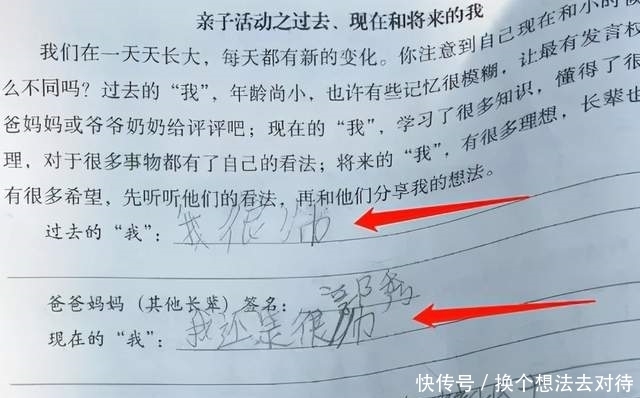 亲子活动之过去、现在和将来的我
我们在一天天长大，每天都有新的变化。你注意到自己现在和小时候
么不同吗？过去的“我”，年龄尚小，也许有些记忆很模糊，让最有发言权
爸妈妈或爷爷奶奶给评评吧；现在的“我”，学习了很多知识，懂得了很
理，对于很多事物都有了自己的看法；将来的“我”，有很多理想，长辈也
有很多希望，先听听他们的看法，再和他们分享我的想法。
过去的“我”：我很帅
爸爸妈妈（其他长辈）签名：
现在的“我”：我还是很帅
快传号／换个想法去对待